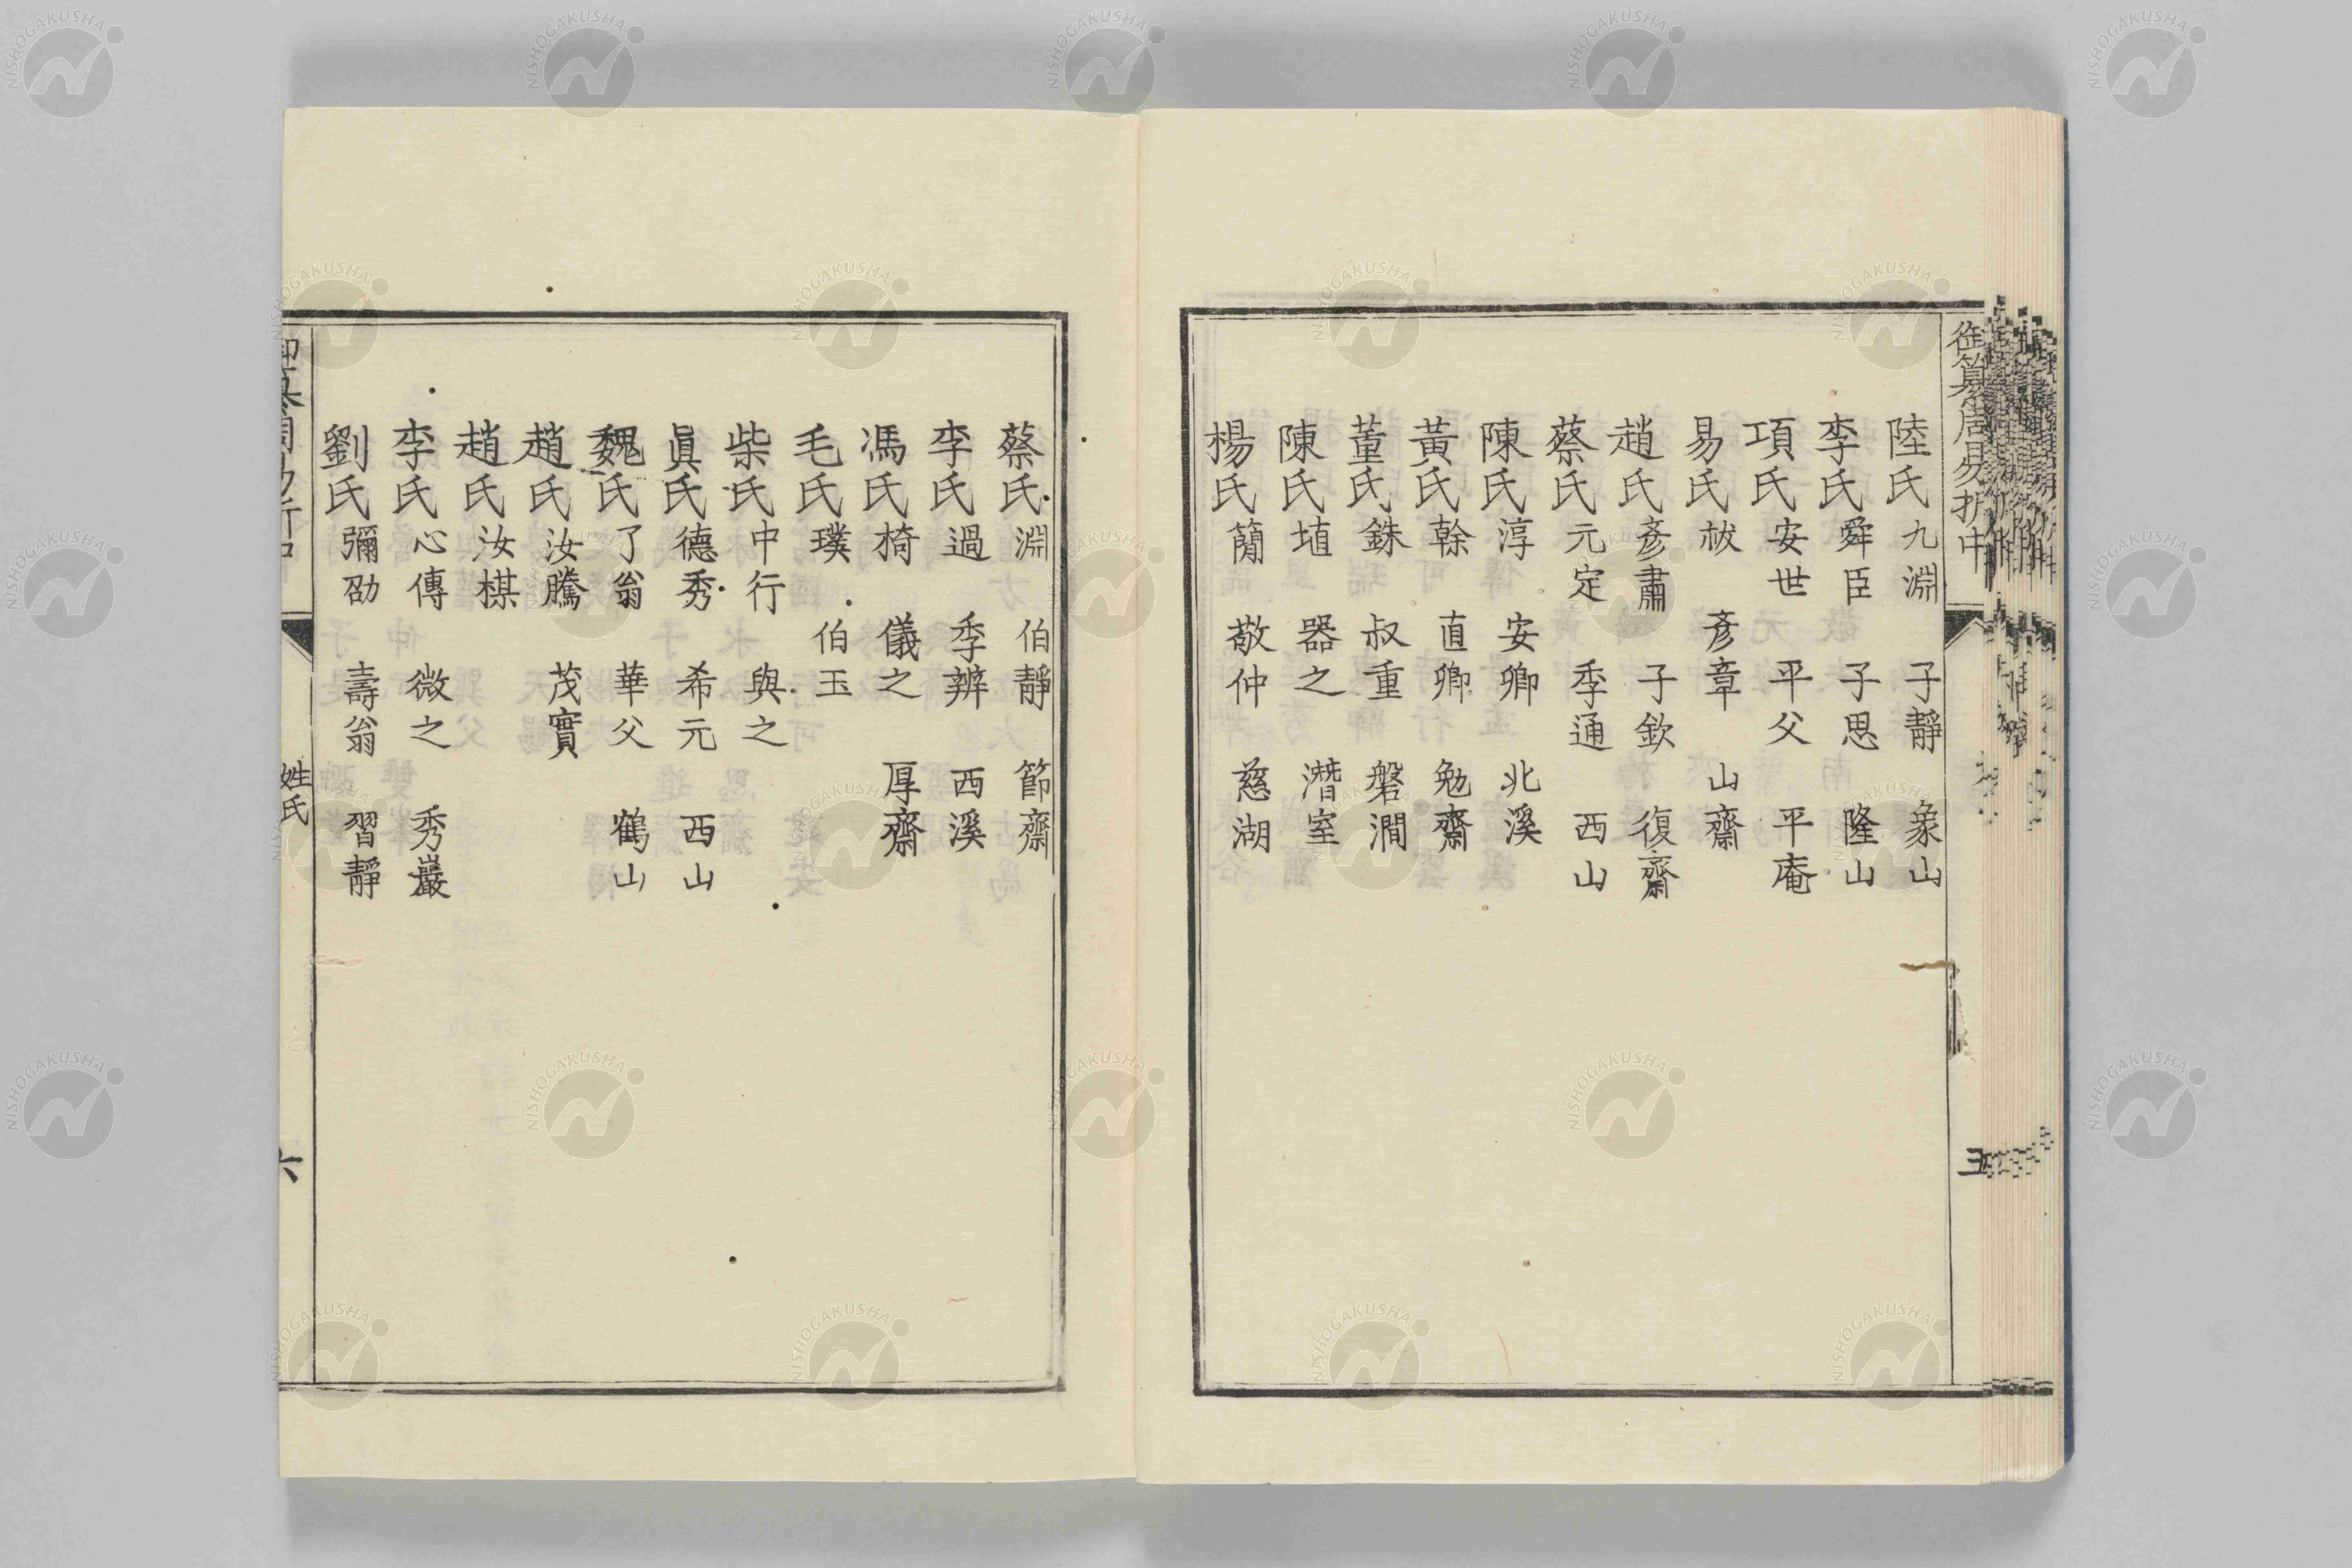 陸氏九淵 子靜 象山
李氏舜臣 子思 隆山
項氏安世 平父 平庵
易氏祓 彥章 山齋
趙氏彥肅 子欽 復齋
蔡氏元定 季通 西山
陳氏淳 安卿 北溪
黃氏榦 直卿 勉齋
董氏銖 叔重 磐澗
陳氏埴 器之 潛室
楊氏簡 敬仲 慈湖
蔡氏淵 伯靜 節齋
李氏過 季辨 西溪
馮氏椅 儀之 厚齋
毛氏璞 伯玉
柴氏中行 與之
眞氏德秀 希元 西山
魏氏了翁 華父 鶴山
趙氏汝騰 茂實
趙氏汝楳
李氏心傳 微之 秀巖
劉氏彌劭 壽翁 習靜
姓氏
六
NISHOGAKUSHA